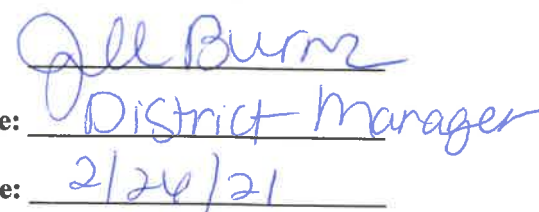 Jill Burnz
e: District Manager
e: 2/26/21